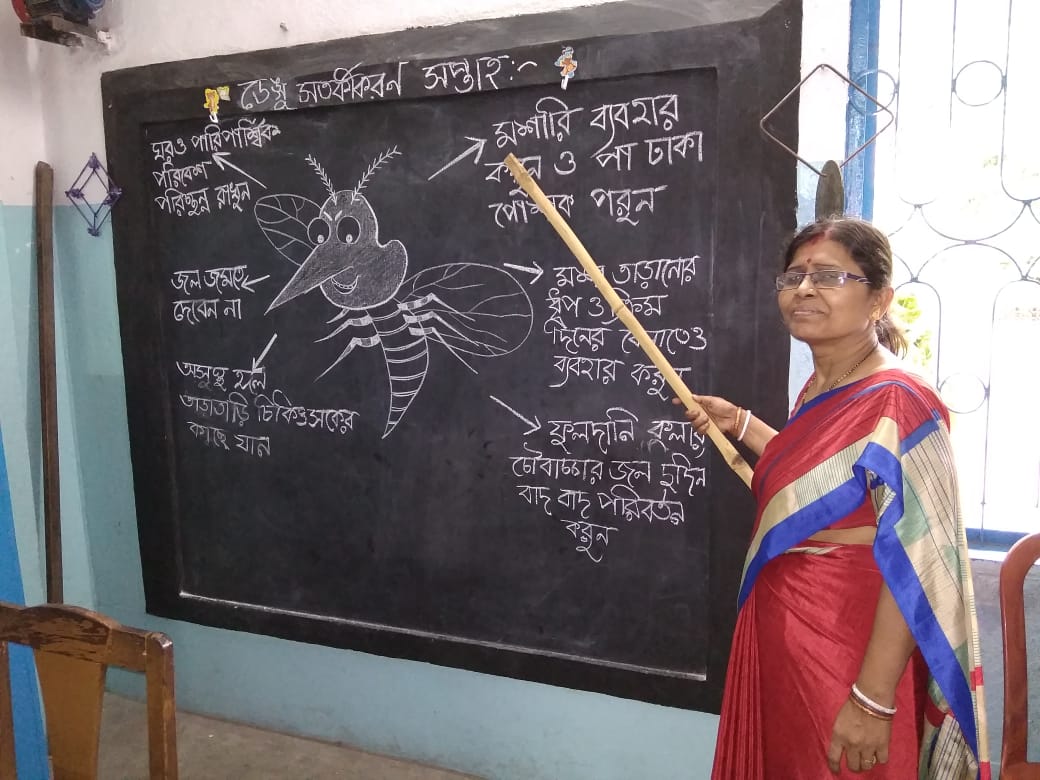 ডেঙ্গু সতর্কীকরণ সপ্তাহ :~
ঘর ও পারিপার্শ্বিক
পরিবেশ
পরিচ্ছন্ন রাখুন
জল জমতে
দেবেন না
অসুস্থ হলে
তাড়াতাড়ি চিকিৎসকের
কাছে যান
মশারি ব্যবহার
করুন ও পা ঢাকা
পোশাক পরুন
মশা তাড়ানোর
ধূপ ও ক্রিম
দিনের বেলাতেও
ব্যবহার করুন
ফুলদানি কুলার
চৌবাচ্চার জল দুদিন
বাদ বাদ পরিবর্তন
করুন